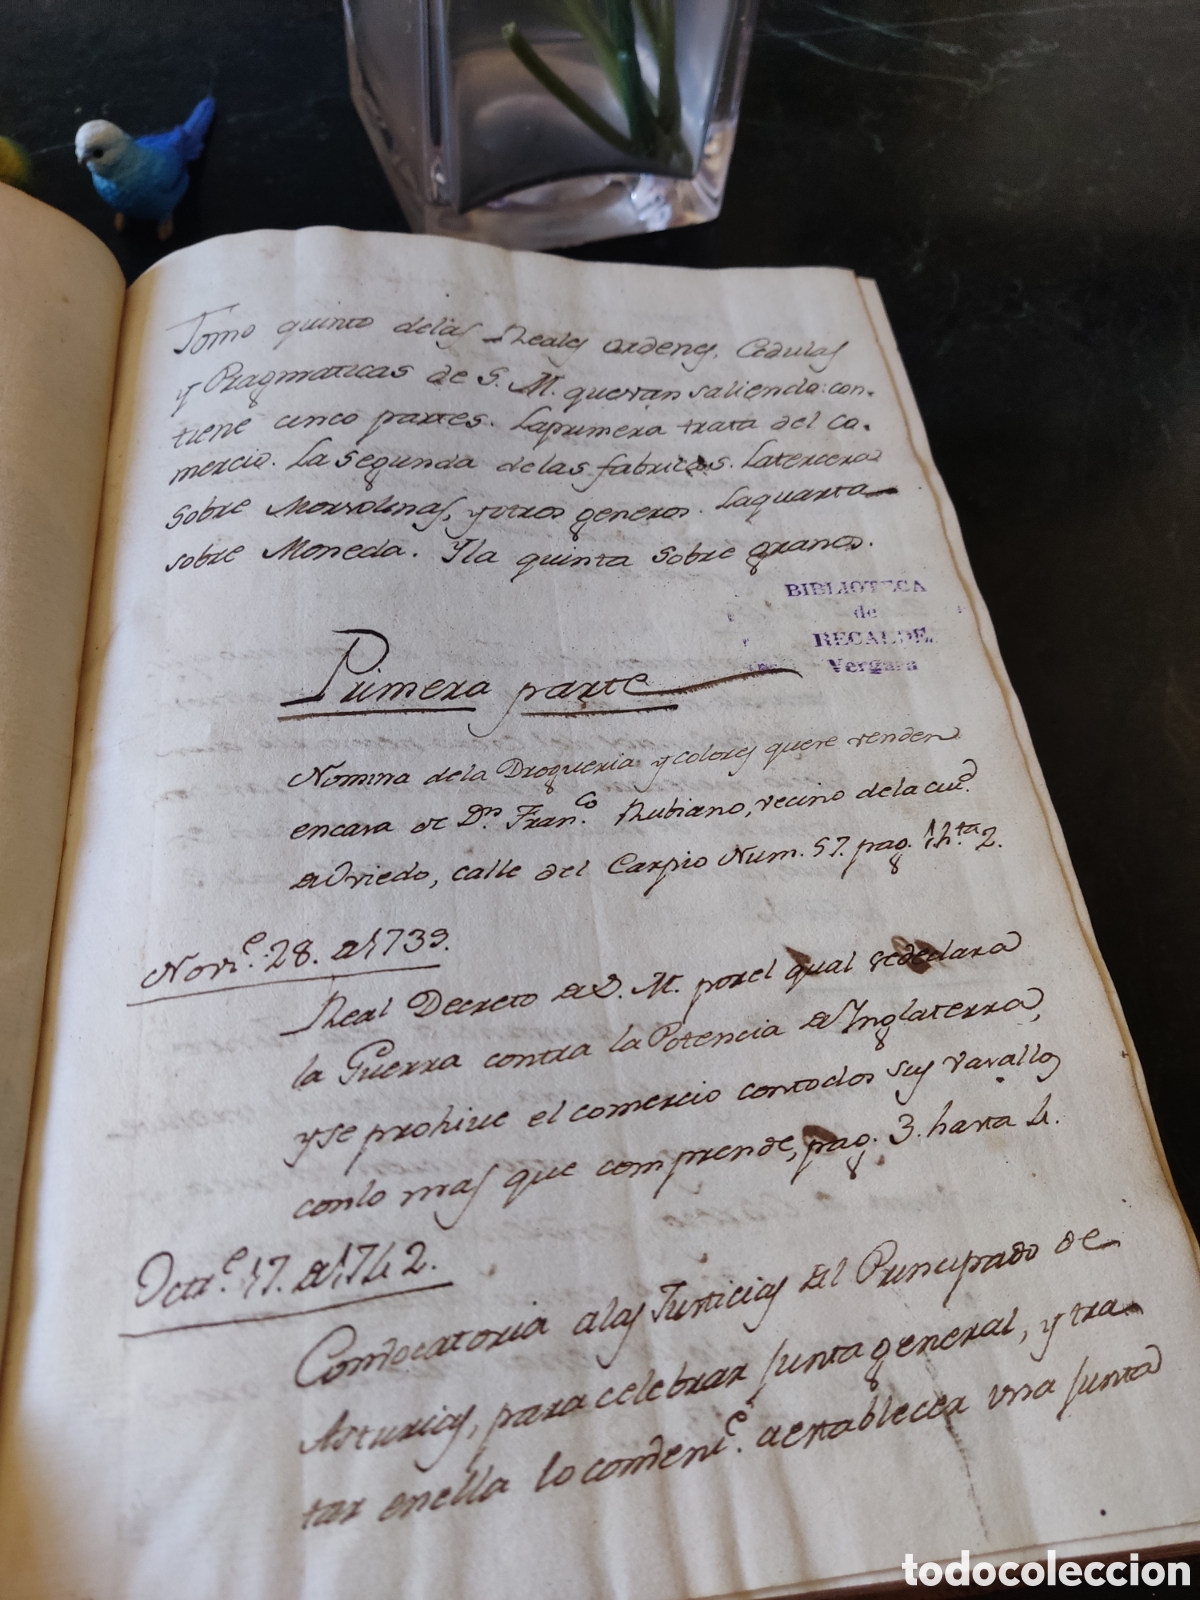 Tomo quinto delas Reales ordenes, Cedulas
y Pragmaticas de S. M. quevan saliendo: con-
tiene cinco partes. Laprimera trata del co-
mercio. La segunda delas fabricas. Latercera
sobre Muselinas, yotros generos. Laquarta
sobre Moneda. Yla quinta sobre granos.
BIBLIOTECA
de
RECALDE
Vergara
Primera parte
Nomina dela Drogueria y colores quese venden
encasa de Dn. Franco. Rubiano, vecino dela ciud.
de Oviedo, calle del Carpio Num. 57. pag. 1. hta. 2.
Novre. 28. de 1739.
Real Decreto de S. M. porel qual sedeclara
la Guerra contra la Potencia de Inglaterra,
yse prohive el comercio contodos sus vasallos
conlo mas que comprende, pag. 3. hasta 4.
Octre. 17. de 1742.
Convocatoria alas Justicias del Principado de
Asturias, para celebrar Junta general, y tra-
tar enella lo combente. aestablecer una Junta
todocoleccion